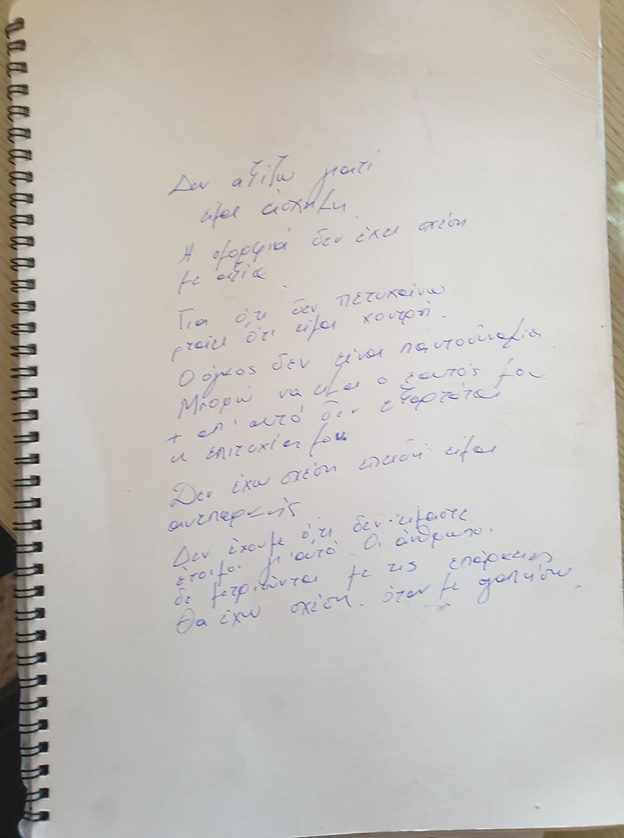 Δεν αξίζω γιατί
είμαι άσχημη.
Η ομορφιά δεν έχει σχέση
με αξία.
Για ότι δεν πετυχαίνω
φταίει ότι είμαι χοντρή.
Ο όγκος δεν είναι παντοδυναμία
Μπορώ να είμαι ο εαυτός μου
+ απ' αυτό δεν εξαρτάται
η επιτυχία μου
Δεν έχω σχέση επειδή είμαι
ανεπαρκής.
Δεν έχουμε ότι δεν είμαστε
έτοιμοι γι' αυτό. Οι άνθρωποι
δε μετριώνται με τις επάρκειες
Θα έχω σχέση όταν με αγαπήσω.